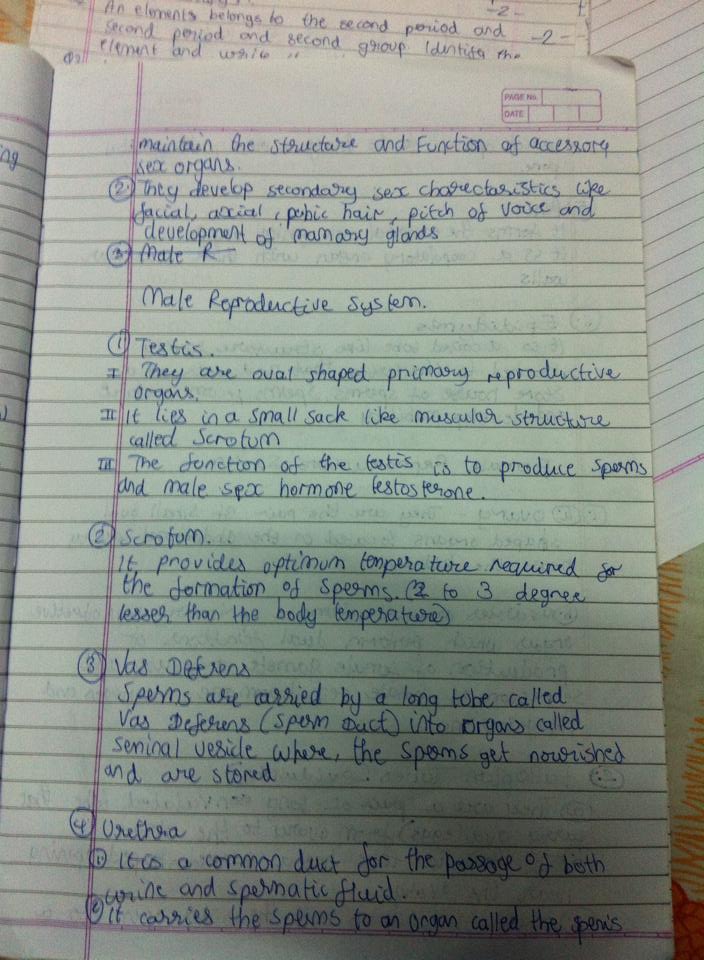 An elements belongs to the second period and
second period and second group Identify the
element and write
-2-
-2-
PAGE No.
DATE
ng
maintain the structure and Function of accessory
sex organs.
② They develop secondary sex charectaristics like
facial, axial, pubic hair, pitch of voice and
development of mamary glands
③ Male R
Male Reproductive System.
① Testis.
I They are oval shaped primary reproductive
organs.
II It lies in a small sack like muscular structure
called Scrotum
III The function of the testis is to produce sperms
and male sex hormone testosterone.
② Scrotum.
It provides optimum temperature required for
the formation of sperms. (2 to 3 degree
lesser than the body temperature)
③ Vas Deferens
Sperms are carried by a long tobe called
Vas Deferens (Sperm Duct) into organs called
Seninal vesicle where, the sperms get nourished
and are stored
④ Urethra
① It is a common duct for the passage of both
urine and spermatic fluid.
② It carries the sperms to an organ called the penis